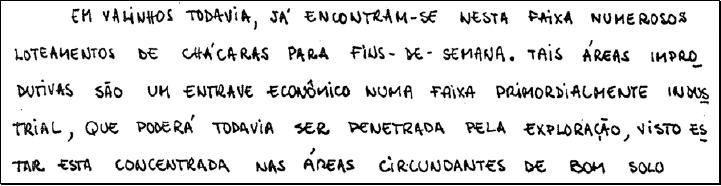 EM VALINHOS TODAVIA, JÁ ENCONTRAM-SE NESTA FAIXA NUMEROSOS
LOTEAMENTOS DE CHÁCARAS PARA FINS-DE-SEMANA. TAIS ÁREAS IMPRO
DUTIVAS SÃO UM ENTRAVE ECONÔMICO NUMA FAIXA PRIMORDIALMENTE INDUS
TRIAL, QUE PODERÁ TODAVIA SER PENETRADA PELA EXPLORAÇÃO, VISTO ES
TAR ESTA CONCENTRADA NAS ÁREAS CIRCUNDANTES DE BOM SOLO